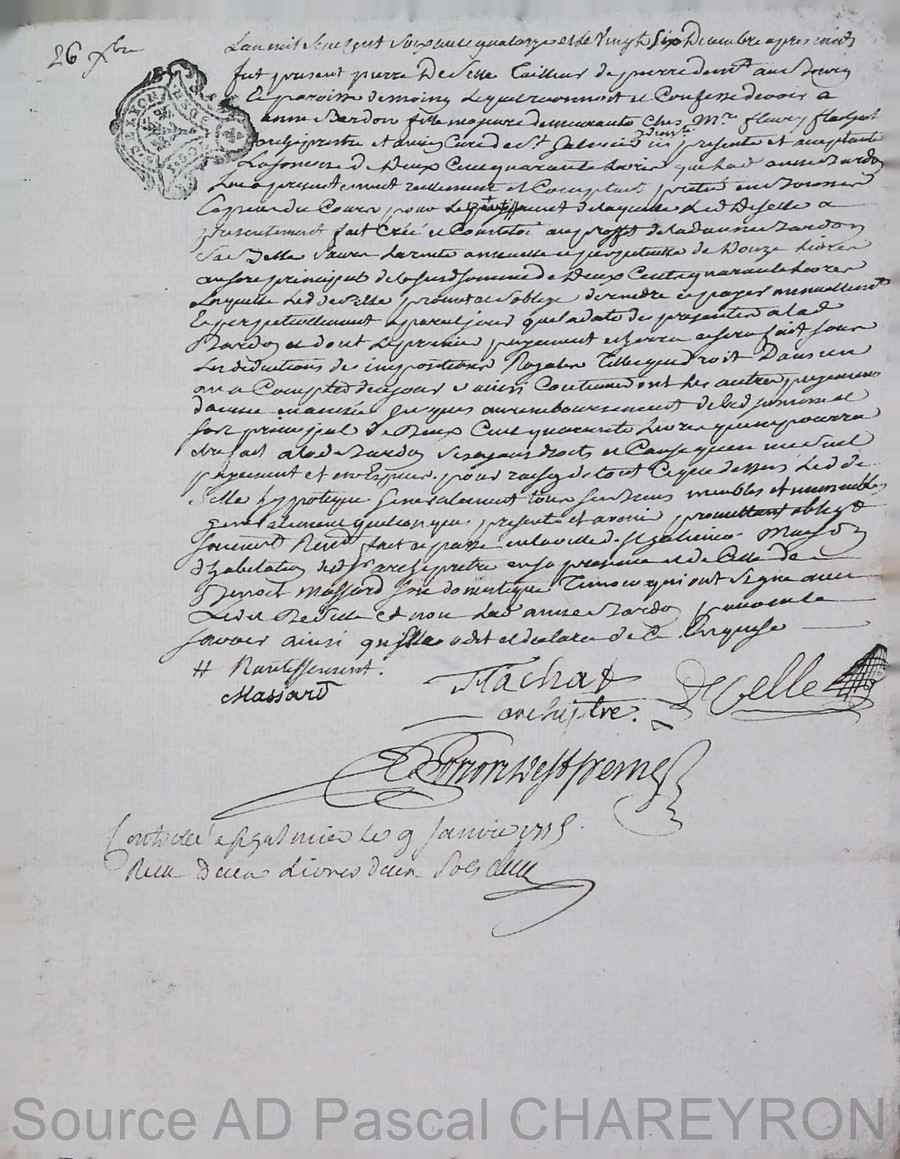 26 xbre
L'an mil sept cent soixante quatorze et le vingt six Decembre apres midi
fut present pierre De Selle tailleur de pierre demt au Bourg
et paroisse de lequel reconnoit et Confesse devoir a
anne Bardon fille majeure demeurante Chez Mr fleury flachat
archiprestre et Curé de St Galmier presente et acceptante
La somme de Deux Cent quarante Livres que lad anne Bardon
Luy a presentement reellement et Comptant preté en
Especes du Cours pour le de laquelle Led De Selle a
presentement fait Créé et Constitué au proffit de lad anne Bardon
la rente annuelle et perpetuelle de Douze Livres
au sort principal de la susd somme de Deux Cent quarante Livres
Laquelle Led de Selle promet et s'oblige de rendre et payer annuellement
Et perpetuellement a pareil jour que la date des presentes a lad
Bardon et dont le premier payement se fera sous
Les deductions des impositions Royales telles que de droit Dans un
an a Compter de ce jour et ainsi Continuera les autres payemens
d'année en année jusques au remboursement de lad somme et
sort principal de Deux Cent quarante Livres que pourra
etre fait a lad Bardon Ses ayans droits et Cause que en un seul
payement et en Especes, pour raison de tout Ce que dessus Led de
Selle hypoteque Generalement tous ses biens meubles et immeubles
generalement quelconques presents et avenir promettant obligt
soumett Rent fait et passé en la ville de St galmier Maison
d'habitation dud Sr archipretre en sa presence et de Celle de
Benoit Massard Son domestique Temoins qui ont signé avec
Led De Selle et non lad anne Bardon pour ne le
savoir ainsi qu'elle a dit et declaré de ce Enquise
# Nantissement.
Massard
Flachat
archiptre.
De Selle
Controllé a St galmier le 9 Janvier 1775.
Reçu Deux Livres deux Sols
Source AD Pascal CHAREYRON